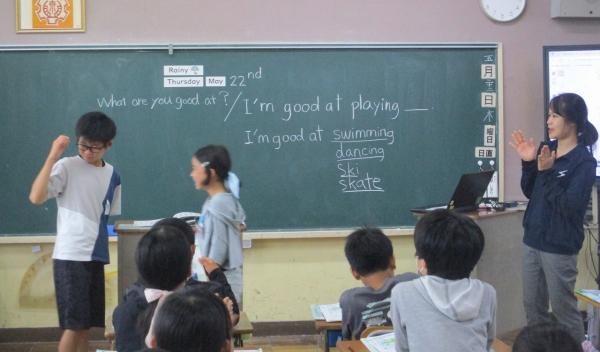 Rainy
Thursday May 22nd
What are you good at? / I'm good at playing ___.
I'm good at swimming
dancing
ski
skate
五
月
日
木
曜日
日直